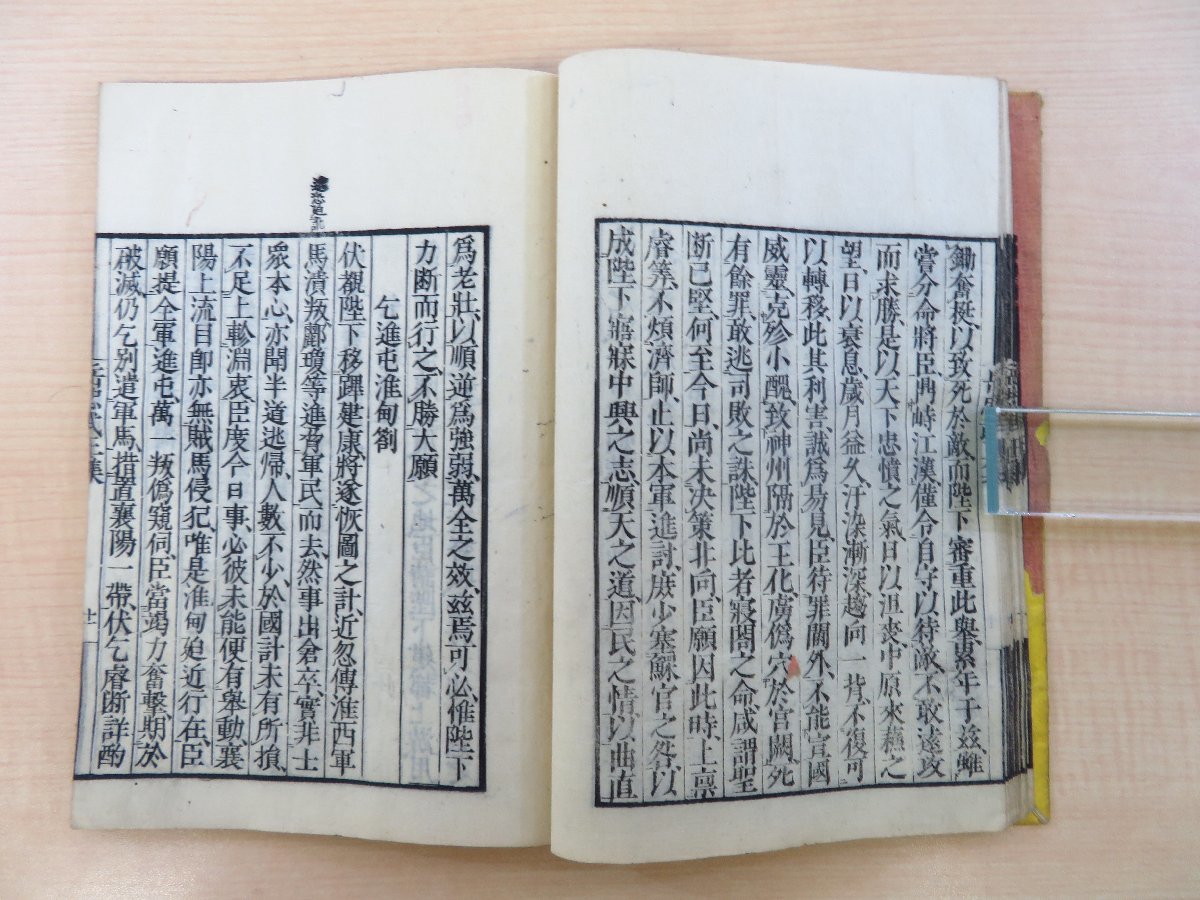 鋤奮挺、以致死於敵、而陛下審重此舉、累年于茲、雖
嘗分命將臣、鬥峙江漢、僅令自守以待敵、不敢遠攻
而求勝、是以天下忠憤之氣、日以沮喪、中原來蘇之
望、日以衰息、歲月益久、汙染漸深、趨向一背、不復可
以轉移、此其利害、誠為易見、臣待罪閫外、不能宣國
威靈、克殄小醜、致神州隔於王化、虜偽穴於宮闕、死
有餘罪、敢逃司敗之誅、陛下比者寢閤之命、咸謂聖
斷已堅、何至今日、尚未決策北向、臣願因此時、上稟
睿筭、不煩濟師、止以本軍進討、庶少塞鰥官之咎、以
成陛下寤寐中興之志、順天之道、因民之情、以曲直
爲老壯、以順逆爲強弱、萬全之效、茲焉可必、惟陛下
力斷而行之、不勝大願
乞進屯淮甸劄
伏覩陛下移蹕建康、將遂恢圖之計、近忽傳淮西軍
馬潰叛、酈瓊等進脅軍民而去、然事出倉卒、實非士
眾本心、亦聞半道逃歸、人數不少、於國計未有所損、
不足上軫淵衷、臣度今日事、必彼未能便有舉動、襄
陽上流、目卽亦無賊馬侵犯、唯是淮甸、迫近行在、臣
願提全軍進屯、萬一叛偽窺伺、臣當竭力奮擊、期於
破滅、仍乞別遣軍馬、措置襄陽一帶、伏乞睿斷詳酌